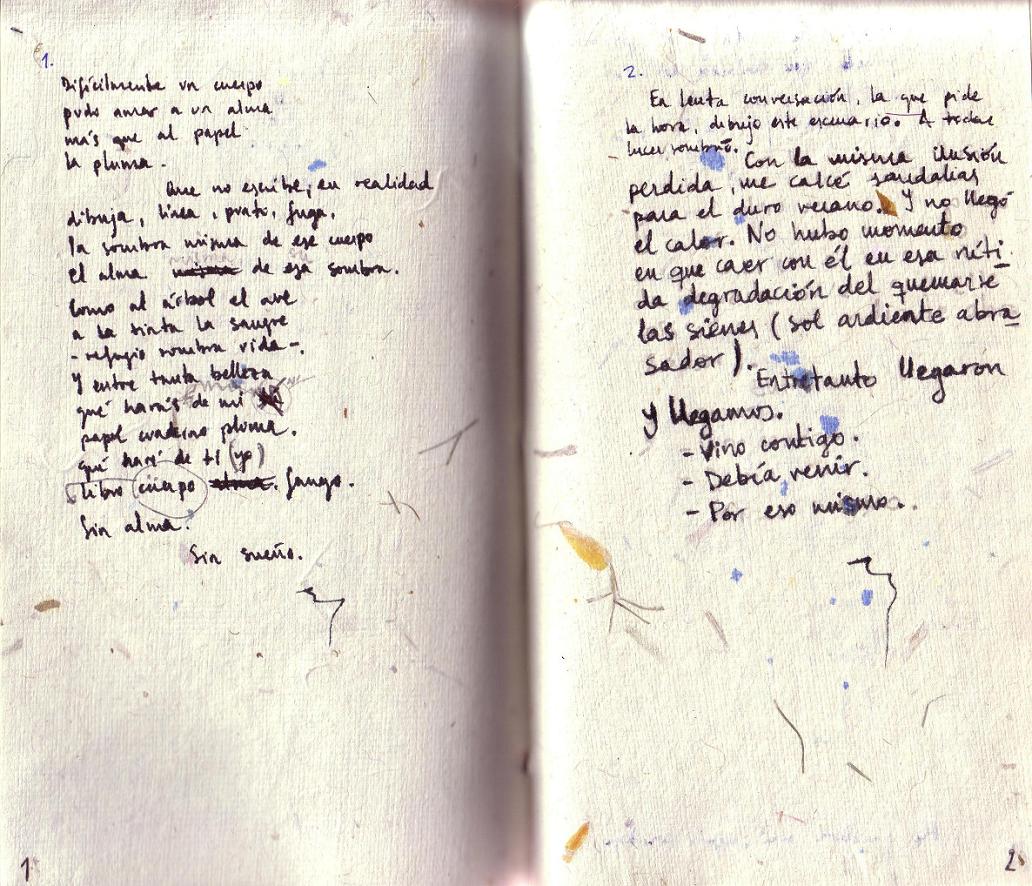 1.
Difícilmente un cuerpo
pudo amar a un alma
más que al papel
la pluma.
Que no escribe, en realidad
dibuja, línea, punto, fuga.
la sombra misma de ese cuerpo
el alma de esa sombra.
Como al árbol el ave
a la tinta la sangre
- refugio sombra vida -.
Y entre tanta belleza
qué harás de mi
papel cuaderno pluma.
qué haré de ti (yo)
libro cuerpo fuego.
Sin alma.
Sin sueño.
1
2.
En lenta conversación, la que pide
la hora, dibujo este escenario. A
luces sombras.
Con la misma ilusión
perdida, me calcé sandalias
para el duro verano. Y no llegó
el calor. No hubo momento
en que caer con él en esa níti-
da degradación del quemarse
las sienes (sol ardiente abra-
sador).
Entretanto llegaron
y llegamos.
- Vino contigo.
- Debía venir.
- Por eso mismo..
2